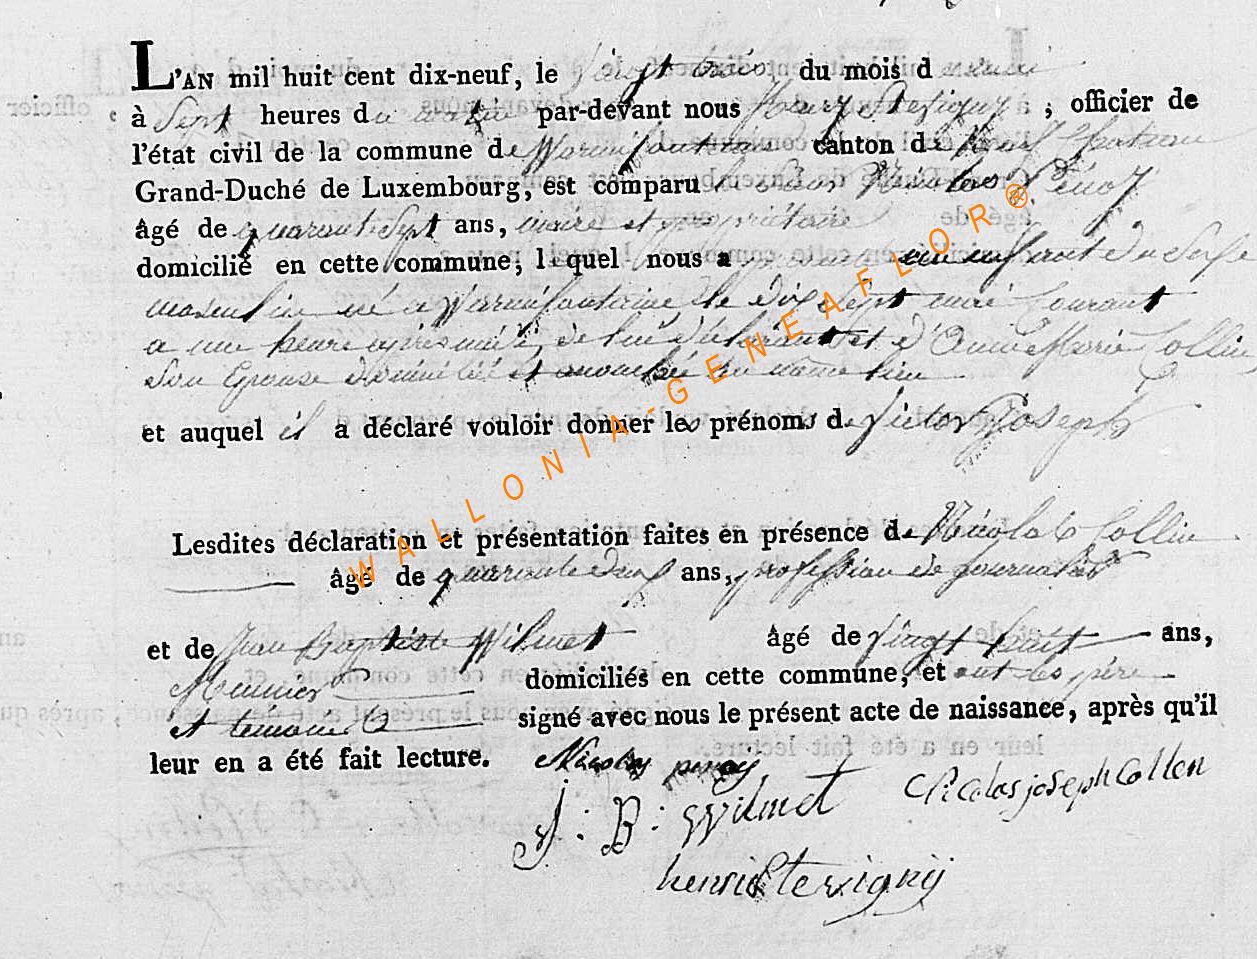 L'AN mil huit cent dix-neuf, le vingt trois du mois d
à Sept heures du matin par-devant nous henry ; officier de
l'état civil de la commune de Warmifontaine canton de Neufchateau
Grand-Duché de Luxembourg, est comparu Nicolas Penoy
âgé de quarante Sept ans, maire et propriétaire
domicilié en cette commune; lequel nous a un enfant du Sexe
masculin né a Warmifontaine le dix Sept mai Courant
a une heure après midi, de lui déclarant et d'Anne Marie Collin
Son Epouse domicilié et au même lieu
et auquel il a déclaré vouloir donner les prénoms de Victor Joseph
Lesdites déclaration et présentation faites en présence de Nicolas Collin
âgé de quarante deux ans, profession de journalier
et de Jean Baptiste Wilmet âgé de vingt huit ans,
Meunier domiciliés en cette commune, et ont les père
et témoins signé avec nous le présent acte de naissance, après qu'il
leur en a été fait lecture. Nicolas penoy
J : B : Wilmet Nicolas joseph Collen
henri
WALLONIA-GENEAFLOR®